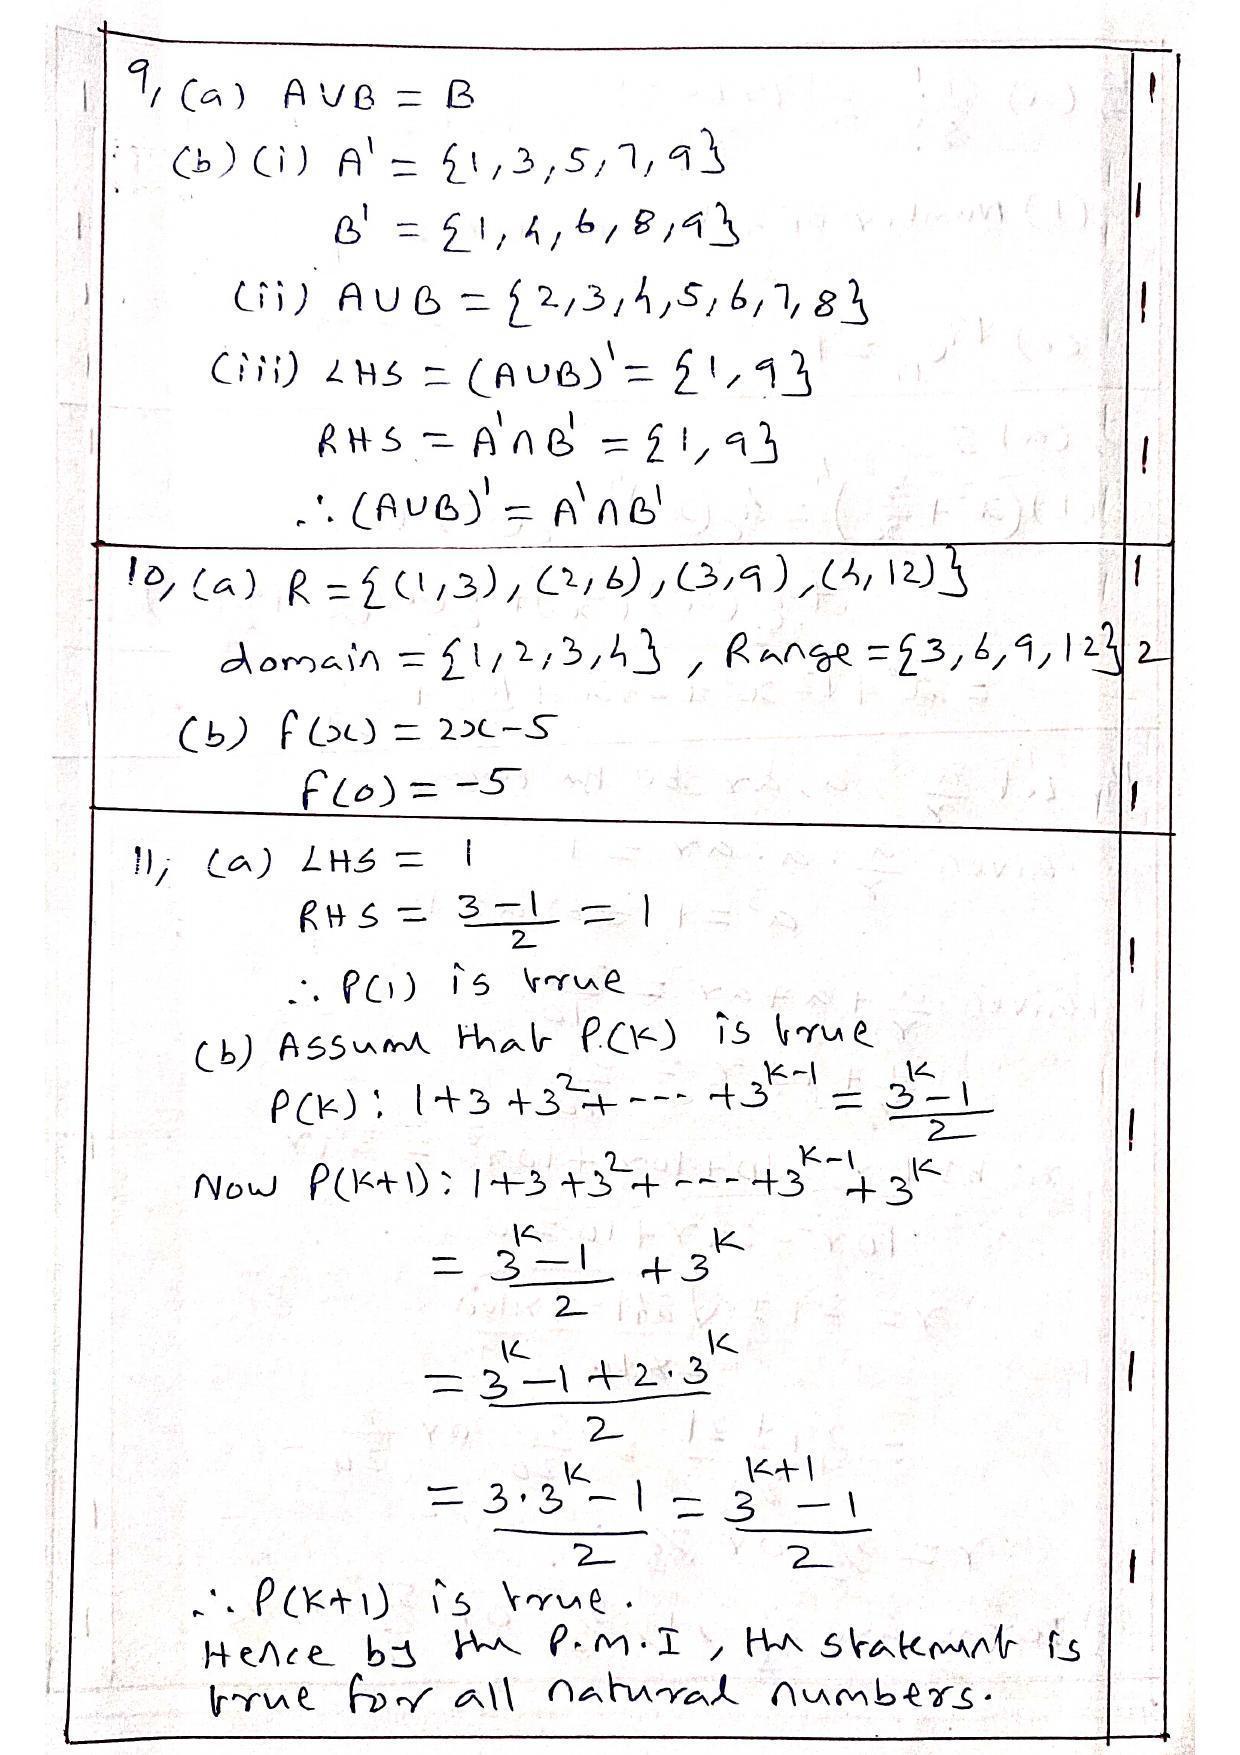 9, (a) A∪B = B 1
(b) (i) A' = {1,3,5,7,9}
B' = {1,4,6,8,9} 1
(ii) A∪B = {2,3,4,5,6,7,8} 1
(iii) LHS = (A∪B)' = {1,9}
RHS = A'∩B' = {1,9} 1
∴ (A∪B)' = A'∩B'
10, (a) R = {(1,3), (2,6), (3,9), (4,12)} 1
domain = {1,2,3,4}, Range = {3,6,9,12} 2
(b) f(x) = 2x-5
f(0) = -5 1
11, (a) LHS = 1
RHS = (3-1)/2 = 1 1
∴ P(1) is true
(b) Assume that P(K) is true
P(K): 1+3+3²+---+3^(K-1) = (3^K-1)/2 1
Now P(K+1): 1+3+3²+---+3^(K-1)+3^K
= (3^K-1)/2 + 3^K
= (3^K-1+2·3^K)/2 1
= (3·3^K-1)/2 = (3^(K+1)-1)/2
∴ P(K+1) is true. 1
Hence by the P.M.I, the statement is
true for all natural numbers.